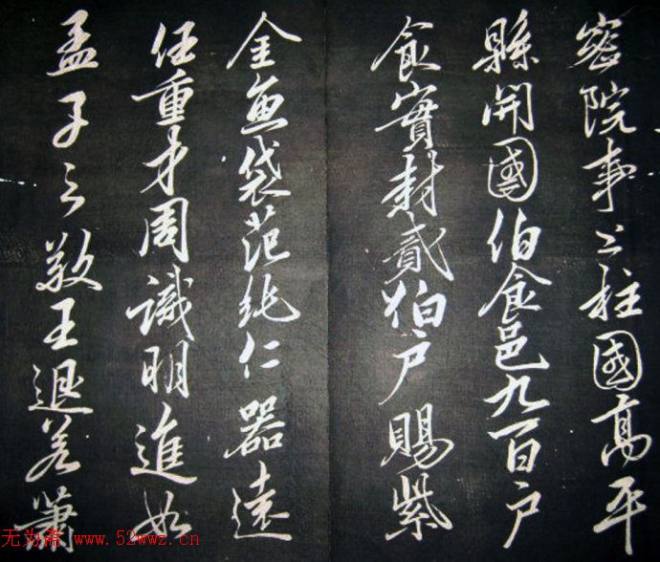 密院事上柱國高平
縣開國伯食邑九百户
食實封貳伯户賜紫
金魚袋范純仁器遠
任重才周識明進如
孟子之敬王退若蕭
www.52wwz.cn